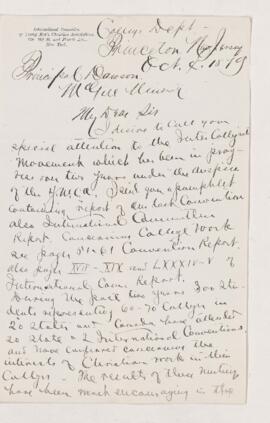 International Committee
of Young Men's Christian Associations
New York.
College Dept.
Princeton New Jersey
Oct. 4. 1879
Principal Dawson.
McGill Univ.
My Dear Sir
I desire to call your
special attention to the Intercollegiate
Movement which has been in prog-
ress two years under the auspices
of the Y.M.C.A. I send you a pamphlet
containing report of our last Convention
also International Committee
Report. Concerning College work
see pages 51-61 Convention Report.
also pages XVII-XIX and LXXXIV-V of
International Com. Report.
During the past two years Stu-
dents representing 60-70 Colleges in
20 States and Canada have attended
20 State & 2 International Conventions
and have conferred concerning the
interests of Christian work in their
Colleges. The result of these meetings
have been most encouraging in the